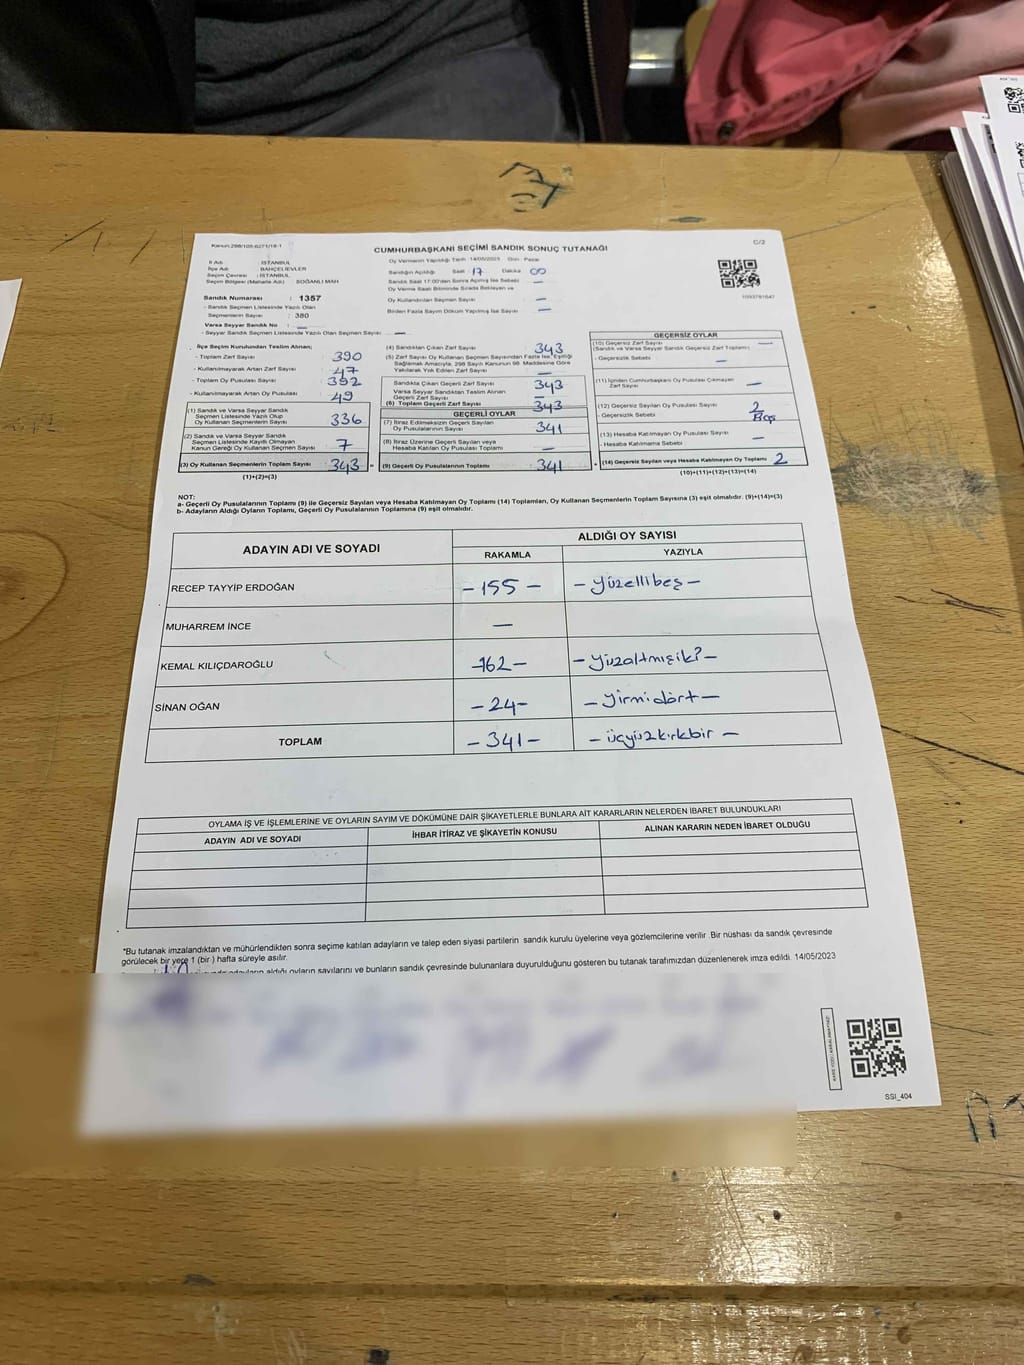 Kanun:298/105-6271/18-1
C/2
CUMHURBAŞKANI SEÇİMİ SANDIK SONUÇ TUTANAĞI
İl Adı : İSTANBUL
İlçe Adı : BAHÇELİEVLER
Seçim Çevresi : İSTANBUL
Seçim Bölgesi (Mahalle Adı) SOĞANLI MAH
Sandık Numarası : 1357
- Sandık Seçmen Listesinde Yazılı Olan
Seçmenlerin Sayısı : 380
Varsa Seyyar Sandık No : —
- Seyyar Sandık Seçmen Listesinde Yazılı Olan Seçmen Sayısı : —
Oy Vermenin Yapıldığı Tarih :14/05/2023 Gün : Pazar
Sandığın Açıldığı Saat 17 Dakika 00
Sandık Saat 17:00'den Sonra Açılmış İse Sebebi —
Oy Verme Saati Bitiminde Sırada Bekleyen ve
Oy Kullandırılan Seçmen Sayısı —
Birden Fazla Sayım Döküm Yapılmış İse Sayısı —
1093781647
İlçe Seçim Kurulundan Teslim Alınan;
- Toplam Zarf Sayısı 390
- Kullanılmayarak Artan Zarf Sayısı 47
- Toplam Oy Pusulası Sayısı 392
- Kullanılmayarak Artan Oy Pusulası 49
(1) Sandık ve Varsa Seyyar Sandık
Seçmen Listesinde Yazılı Olup
Oy Kullanan Seçmenlerin Sayısı 336
(2) Sandık ve Varsa Seyyar Sandık
Seçmen Listesinde Kayıtlı Olmayan
Kanun Gereği Oy Kullanan Seçmen Sayısı 7
(3) Oy Kullanan Seçmenlerin Toplam Sayısı 343 =
(1)+(2)=(3)
(4) Sandıktan Çıkan Zarf Sayısı 343
(5) Zarf Sayısı Oy Kullanan Seçmen Sayısından Fazla İse, Eşitliği
Sağlamak Amacıyla, 298 Sayılı Kanunun 98. Maddesine Göre
Yakılarak Yok Edilen Zarf Sayısı —
Sandıkta Çıkan Geçerli Zarf Sayısı 343
Varsa Seyyar Sandıktan Teslim Alınan
Geçerli Zarf Sayısı —
(6) Toplam Geçerli Zarf Sayısı 343
GEÇERLİ OYLAR
(7) İtiraz Edilmeksizin Geçerli Sayılan
Oy Pusulalarının Sayısı 341
(8) İtiraz Üzerine Geçerli Sayılan veya
Hesaba Katılan Oy Pusulası Toplamı —
(9) Geçerli Oy Pusulalarının Toplamı 341 +
GEÇERSİZ OYLAR
(10) Geçersiz Zarf Sayısı —
(Sandık ve Varsa Seyyar Sandık Geçersiz Zarf Toplamı)
- Geçersizlik Sebebi —
(11) İçinden Cumhurbaşkanı Oy Pusulası Çıkmayan
Zarf Sayısı —
(12) Geçersiz Sayılan Oy Pusulası Sayısı 2
- Geçersizlik Sebebi Boş
(13) Hesaba Katılmayan Oy Pusulası Sayısı —
- Hesaba Katılmama Sebebi
(14) Geçersiz Sayılan veya Hesaba Katılmayan Oy Toplamı 2
(10)+(11)+(12)+(13)=(14)
NOT:
a- Geçerli Oy Pusulalarının Toplamı (9) ile Geçersiz Sayılan veya Hesaba Katılmayan Oy Toplamı (14) Toplamları, Oy Kullanan Seçmenlerin Toplam Sayısına (3) eşit olmalıdır. (9)+(14)=(3)
b- Adayların Aldığı Oyların Toplamı, Geçerli Oy Pusulalarının Toplamına (9) eşit olmalıdır.
ADAYIN ADI VE SOYADI
ALDIĞI OY SAYISI
RAKAMLA YAZIYLA
RECEP TAYYİP ERDOĞAN - 155 - - yüzellibeş -
MUHARREM İNCE —
KEMAL KILIÇDAROĞLU -162- - yüzaltmışiki -
SİNAN OĞAN -24- - yirmidört -
TOPLAM - 341 - - üçyüzkırkbir -
OYLAMA İŞ VE İŞLEMLERİNE VE OYLARIN SAYIM VE DÖKÜMÜNE DAİR ŞİKAYETLERLE BUNLARA AİT KARARLARIN NELERDEN İBARET BULUNDUKLARI
ADAYIN ADI VE SOYADI İHBAR İTİRAZ VE ŞİKAYETİN KONUSU ALINAN KARARIN NEDEN İBARET OLDUĞU
*Bu tutanak imzalandıktan ve mühürlendikten sonra seçime katılan adayların ve talep eden siyasi partilerin sandık kurulu üyelerine veya gözlemcilerine verilir .Bir nüshası da sandık çevresinde
görülecek bir yere 1 (bir ) hafta süreyle asılır.
aldığı oyların sayılarını ve bunların sandık çevresinde bulunanlara duyurulduğunu gösteren bu tutanak tarafımızdan düzenlenerek imza edildi. 14/05/2023
SSI_404